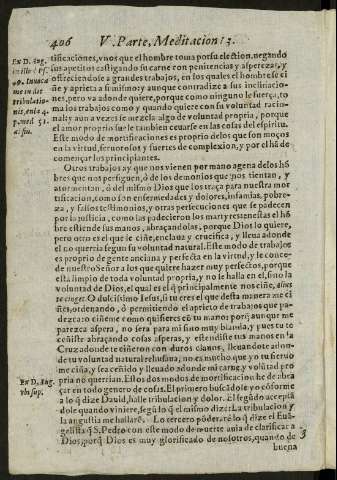 406 V. Parte, Meditacion 13.
Ex D. Aug.
in illud Ps.
me in die
tribulatio-
nis, infra 4.
p. med. 51.
a. fin.
tificaciones, vnos que el hombre toma por su election, negando
sus apetitos castigando su carne con penitencias y asperezas, y
ofreciendose a grandes trabajos, en los quales el hombre se ci
ñe y aprieta a si mismo y aunque contradize a sus inclinacio-
nes, pero va adonde quiere, porque como ninguno le fuerça, to
ma los trabajos como y quando quiere con su voluntad racio-
nal y aun a vezes se mezcla algo de voluntad propria, porque
el amor proprio suele tambien ceuarse en las cosas del espiritu.
Este modo de mortificaciones es proprio de los que son moços
en la virtud, feruorosos y fuertes de complexion, y por el hã de
començar los principiantes.
Otros trabajos ay que nos vienen por mano agena de los hõ
bres que nos persiguen, ò de los demonios que nos tientan, y
atormentan, ò del mismo Dios que los traça para nuestra mor
tificacion, como son enfermedades y dolores, infamias, pobre-
za, y falsos testimonios, y otras persecuciones que se padecen
por la justicia, como las padecieron los martyres en estas el hõ
bre estiende sus manos, abraçandolas, porque Dios lo quiere,
pero otro es el que le ciñe, enclaua y crucifica, y lleua adonde
el no querria segun su voluntad natural. Este modo de trabajos
es proprio de gente anciana y perfecta en la virtud, y le conce-
de nuestro Señor a los que quiere hazer muy perfectos, porque
està limpio de toda voluntad propria, y no se halla en el, sino la
voluntad de Dios, el qual es el q̃ principalmente nos ciñe, alius
te cinget. O dulcissimo Iesus, si tu eres el que desta manera me ci
ñes, ordenando, ò permitiendo el aprieto de trabajos que pa-
dezca o ciñeme como quisieres cõ tu mano porq̃ aunque me
parezca aspera, no sera para mi sino muy blanda, y pues tu te
ceñiste abraçando cosas asperas, y estendiste tus manos en la
Cruz adonde te ciñeron con duros clauos, lleuandote adon-
de tu voluntad natural rehusaua, no es mucho que yo tu sieruo
me ciña, y sea ceñido y lleuado adonde mi carne y voluntad pro
Ex D. Aug.
vbi sup.
pria no querrian. Estos dos modos de mortificacion se de abra
çar en todo genero de cosas. El primero buscãdole yo cõforme
a lo q̃ dize Dauid, hallè tribulacion y dolor. El segũdo aceptã
dole quando viniere, segũ lo q̃ el mismo dize: La tribulacion y
la angustia me hallarõ. Lo tercero põderarè lo q̃ dize el Euã-
gelista q̃ S. Pedro con este modo de muerte auia de clarificar a
Dios, porq̃ Dios es muy glorificado de nosotros, quando de
buena